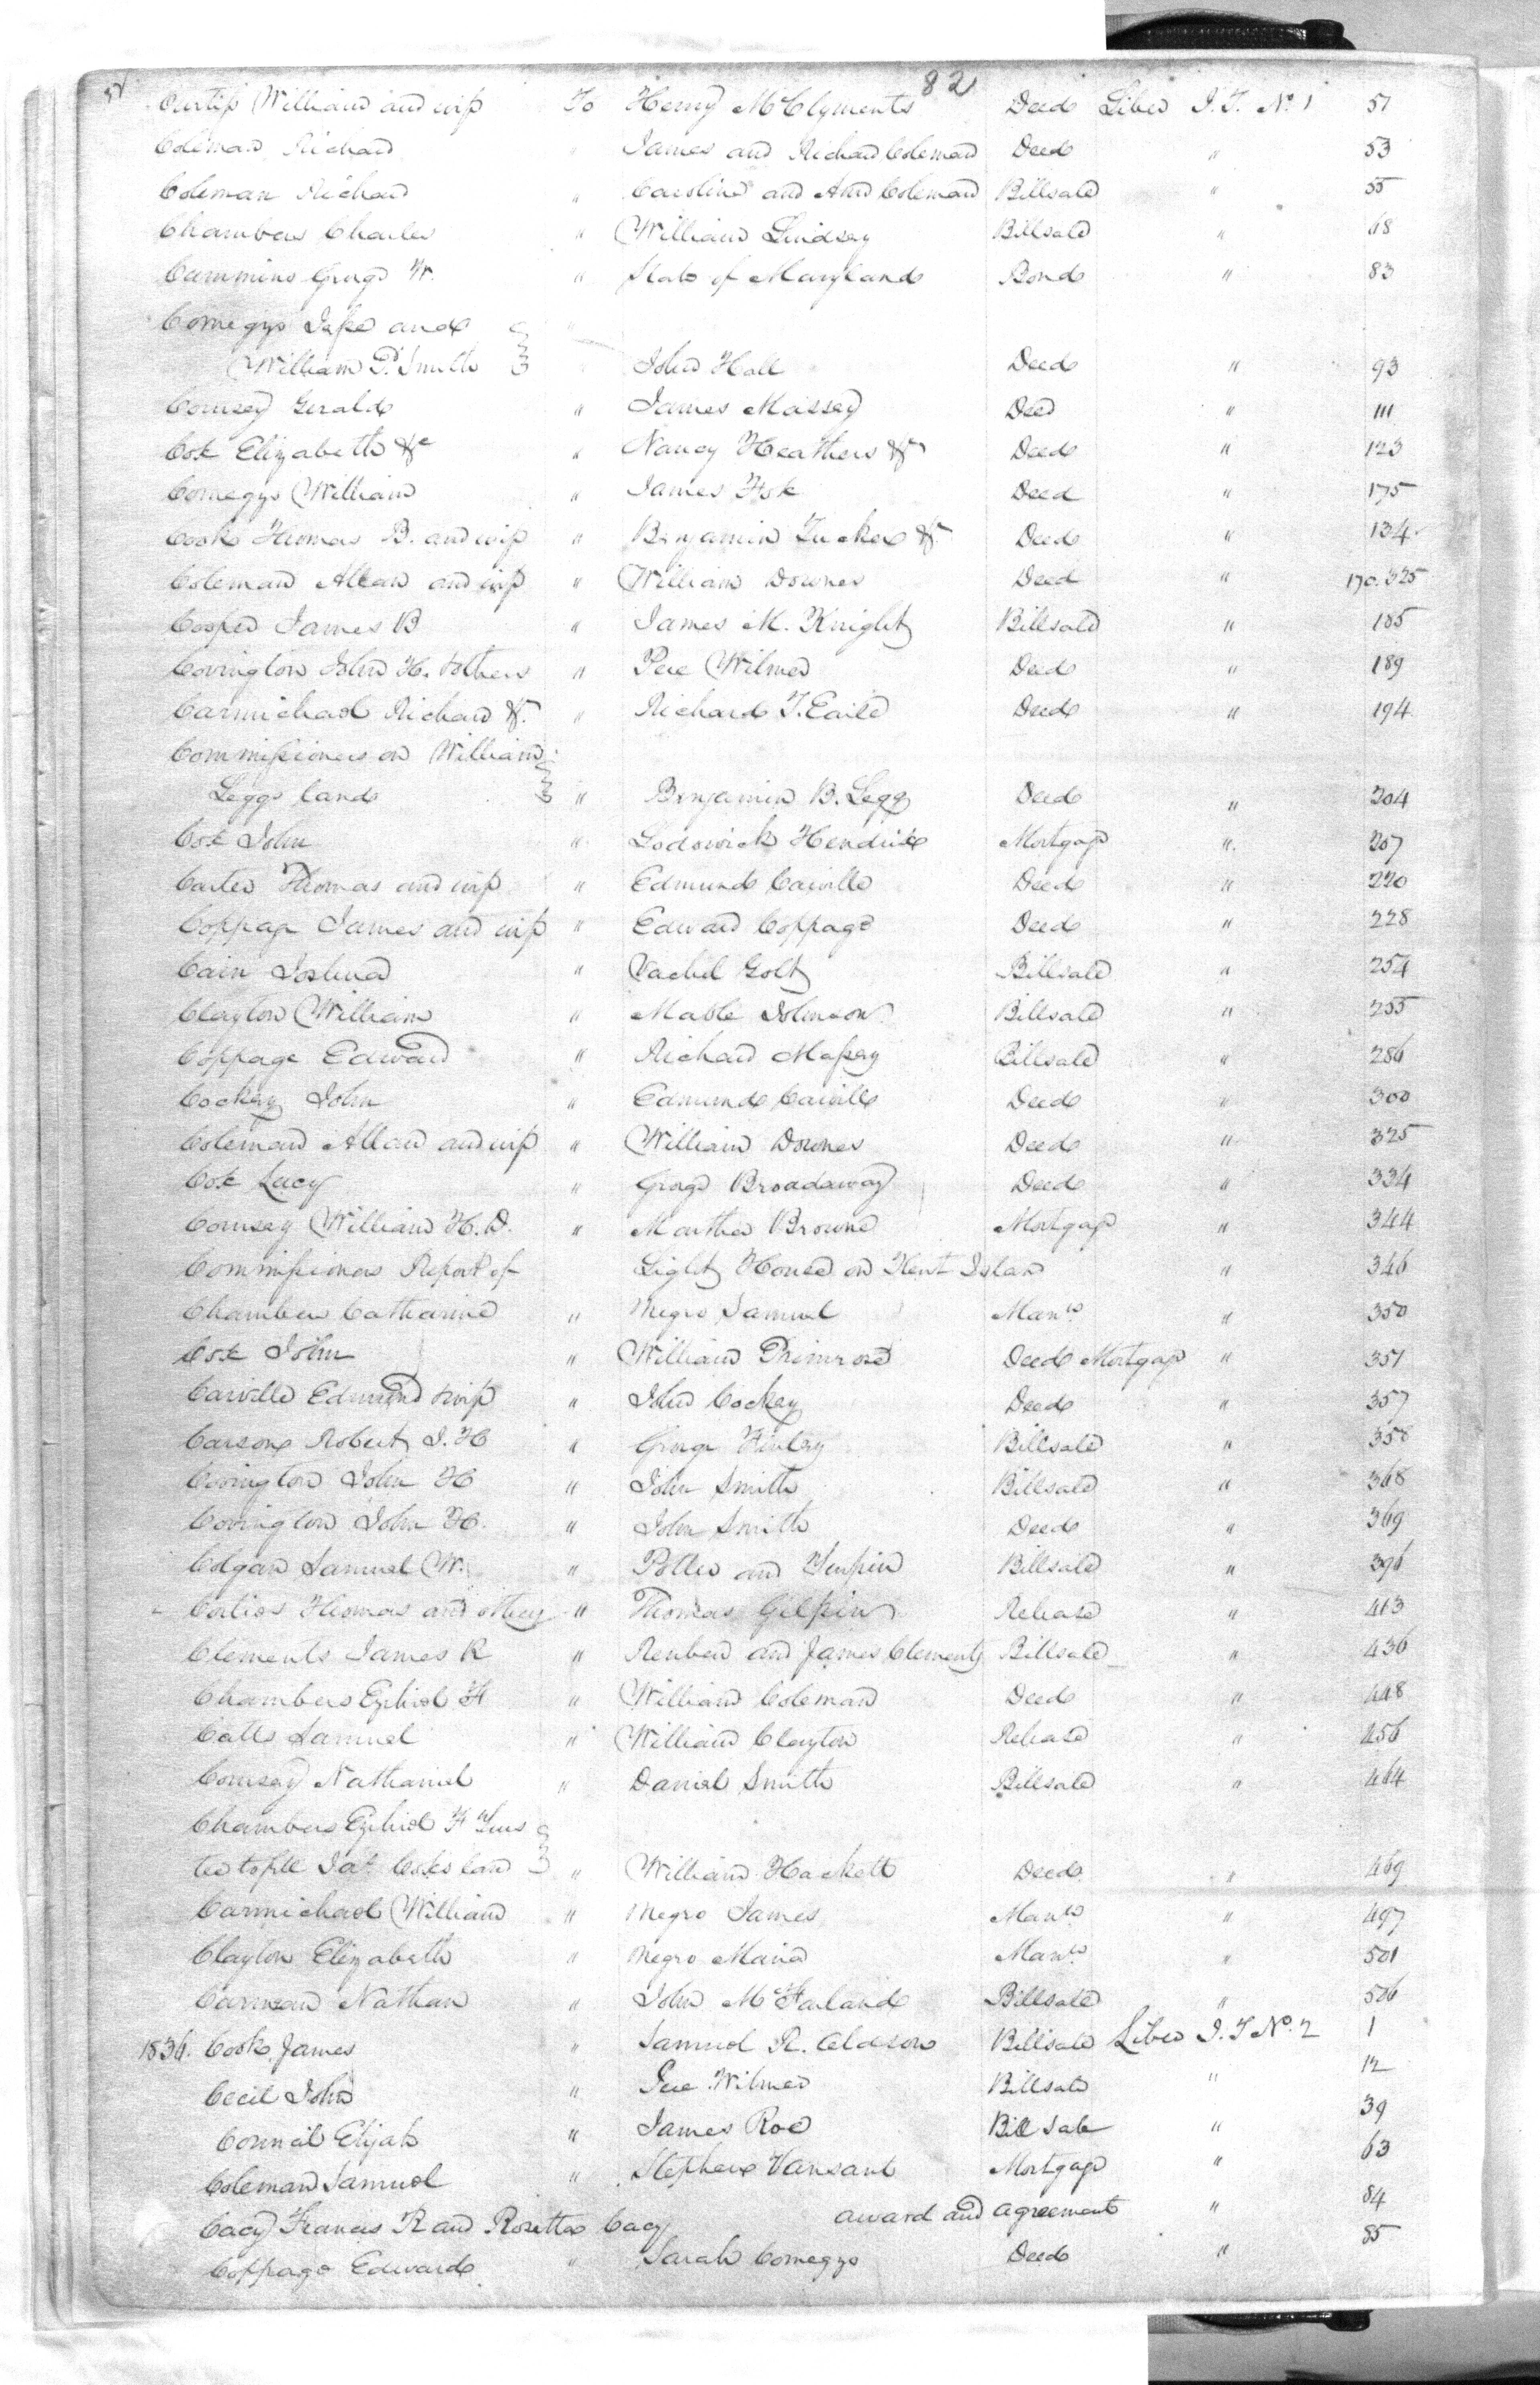 82
Curtiss William and wife To Henry McClyments Deed Liber I.T. No. 1 51
Coleman Richard " James and Richard Coleman Deed " 53
Coleman Richard " Caroline and Ann Coleman Billsale " 55
Chambers Charles " William Lindsey Billsale " 68
Cummins George W. " State of Maryland Bond " 83
Comegys Jesse and "
William P. Smith John Hall Deed " 93
Comsey Gerald " James Massey Deed " 111
Cox Elizabeth &c " Nancy Heathers &c Deed " 123
Comegys William " James Fox Deed " 175
Cook Thomas B. and wife " Benjamin Tucker &c Deed " 134
Coleman Allan and wife " William Downes Deed " 170.325
Cooper James B " James M. Knight Billsale " 185
Covington John H. &others " Pere Wilmer Deed " 189
Carmichael Richard &c. " Richard T. Earle Deed " 194
Commissioners on William
Leggs land " Benjamin B. Legg Deed " 204
Cox John " Lodowick Hendrix Mortgage " 207
Carter Thomas and wife " Edmund Carville Deed " 220
Coppage James and wife " Edward Coppage Deed " 228
Cain Joshua " Vachel Golt Billsale " 254
Clayton William " Mable Johnson Billsale " 255
Coppage Edward " Richard Massey Billsale " 286
Cockey John " Edmund Carville Deed " 300
Coleman Allan and wife " William Downes Deed " 325
Cox Lucy " George Broadaway Deed " 334
Comsey William H. D. " Martha Browne Mortgage " 344
Commissioners Report of Light House on Kent Island " 346
Chambers Catharine " Negro Samuel Man. " 350
Cox John " William Primrose Deed Mortgage " 351
Carville Edmund &wife " John Cockey Deed " 357
Carson Robert J. H " George Finley Billsale " 358
Covington John H " John Smith Billsale " 368
Covington John H. " John Smith Deed " 369
Colgan Samuel W. " Potter and Turpin Billsale " 396
Thomas and " Thomas Gilpin Release " 413
Clements James R " Reuben and James Clements Billsale " 436
Chambers Ezekiel F " William Coleman Deed " 448
Catts Samuel " William Clayton Release " 456
Comsey Nathaniel " Daniel Smith Billsale " 464
Chambers Ezekiel F Trus
tee to sell Jas. Cox's land " William Hackett Deed " 469
Carmichael William " Negro James Man. " 497
Clayton Elizabeth " Negro Maria Man. " 501
Carmean Nathan " John McFarland Billsale " 506
1836. Cook James " Samuel R. Oldson Billsale Liber I.T No. 2 1
Cecil John " Pere Wilmer Billsale " 12
Council Elijah " James Roe Bill Sale " 39
Coleman Samuel " Stephen Vansant Mortgage " 63
Cacy Francis R and Rosetta Cacy award and agreement " 84
Coppage Edward " Sarah Comegys Deed " 85